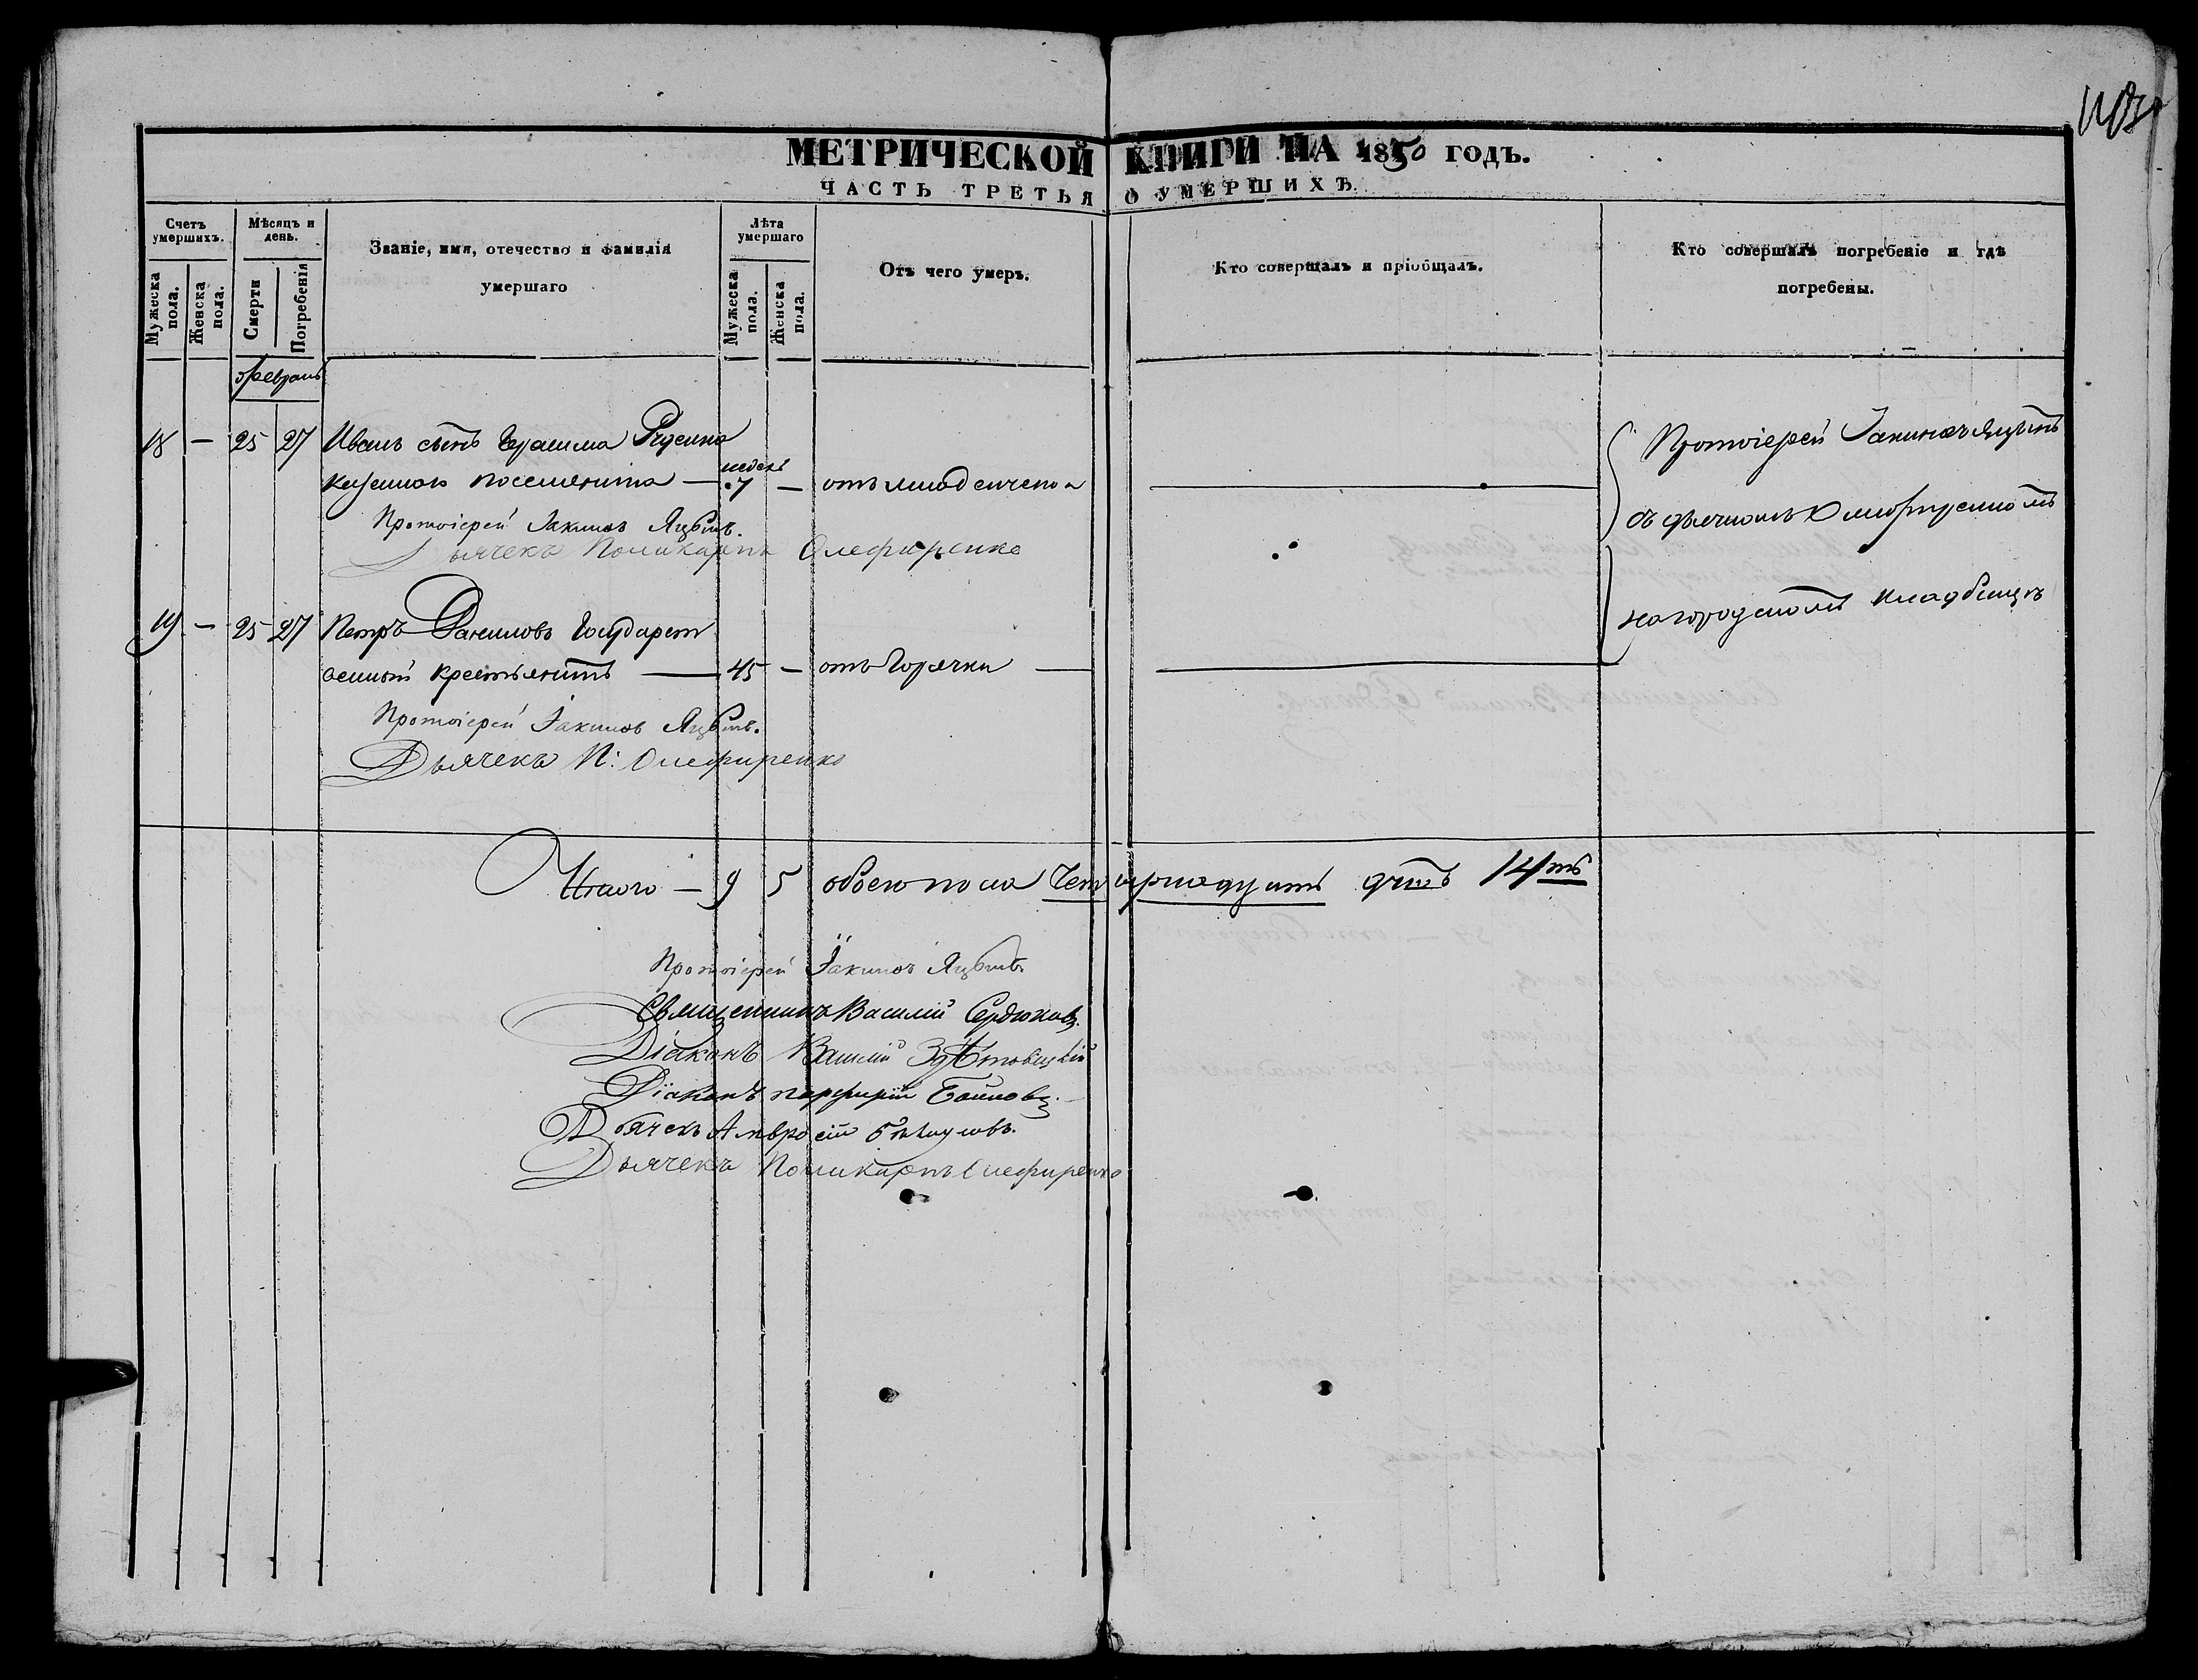 МЕТРИЧЕСКОЙ КНИГИ НА 1850 ГОДЪ.
ЧАСТЬ ТРЕТЬЯ О УМЕРШИХЪ.
Счетъ умершихъ.
Мужеска пола.
Женска пола.
Мѣсяцъ и день.
Смерти
Погребенія
Званіе, имя, отечество и фамилія умершаго
Лѣта умершаго
Мужеска пола.
Женска пола.
Отъ чего умеръ.
Кто совершалъ и пріобщалъ.
Кто совершалъ погребеніе и гдѣ погребены.
февраль
18 — 25 27 Иванъ сынъ Герасима
недель
поселянина — 7 — отъ младенческа
Протоіерей Іакимъ Яцынъ.
Дьячекъ Поликарпъ Олефиренко
Протоіерей
съ дьячкомъ
на городскомъ кладбищѣ
19 — 25 27 Петръ Даниловъ Государст
венный крестьянинъ — 45 — отъ Горячки —
Протоіерей Іакимъ Яцынъ.
Дьячекъ П: Олефиренко
Итого — 9 5 обоего пола Четырнадцать 14ть
Протоіерей Іакимъ Яцынъ
Священникъ Василій Сердюковъ.
Діаконъ Василій
Діаконъ Порфирій
Дьячекъ Амвросій
Дьячекъ Поликарпъ Олефиренко